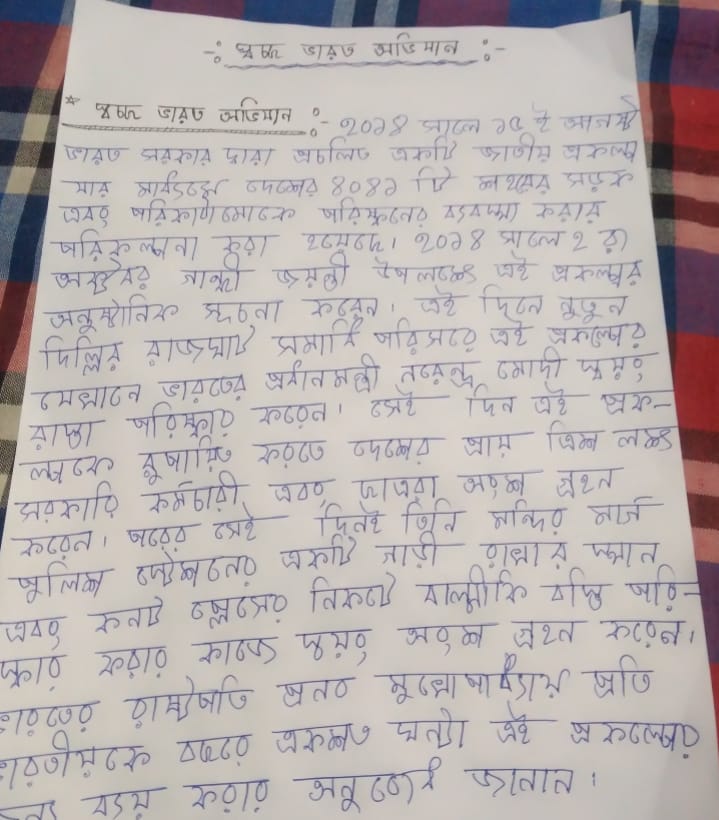 -: স্বচ্ছ ভারত অভিযান :-
* স্বচ্ছ ভারত অভিযান :- ২০১৪ সালে ১৫ ই আগষ্ট
ভারত সরকার দ্বারা প্রচলিত একটি জাতীয় প্রকল্প
যার মাধ্যমে দেশের ৪০৪১ টি শহরের সড়ক
এবং পরিকাঠামোকে পরিষ্কারের ব্যবস্থা করার
পরিকল্পনা করা হয়েছে। ২০১৪ সালে ২ রা
অক্টোবর গান্ধী জয়ন্তী উপলক্ষে এই প্রকল্পের
অনুষ্ঠানিক সূচনা করেন। এই দিনে নতুন
দিল্লির রাজঘাট সমাধি পরিসরে এই প্রকল্পের
যেখানে ভারতের প্রধানমন্ত্রী নরেন্দ্র মোদী স্বয়ং
রাস্তা পরিষ্কার করেন। সেই দিন এই প্রক-
ল্পকে রুপায়িত করতে দেশের প্রায় ত্রিশ লক্ষ
সরকারি কর্মচারী এবং ছাত্ররা অংশ গ্রহন
করেন। পরের সেই দিনই তিনি মন্দির মার্গ
পুলিশ স্টেশনের একটি গাড়ী রাখার স্থান
এবং কনট প্লেসের নিকটে বাল্মীকি বস্তি পরি-
স্কার করার কাজে স্বয়ং অংশ গ্রহন করেন।
ভারতের রাষ্ট্রপতি প্রনব মুখোপাধ্যায় প্রতি
ভারতীয়কে বছরে একশত ঘন্টা এই প্রকল্পের
জন্য ব্যয় করার অনুরোধ জানান।